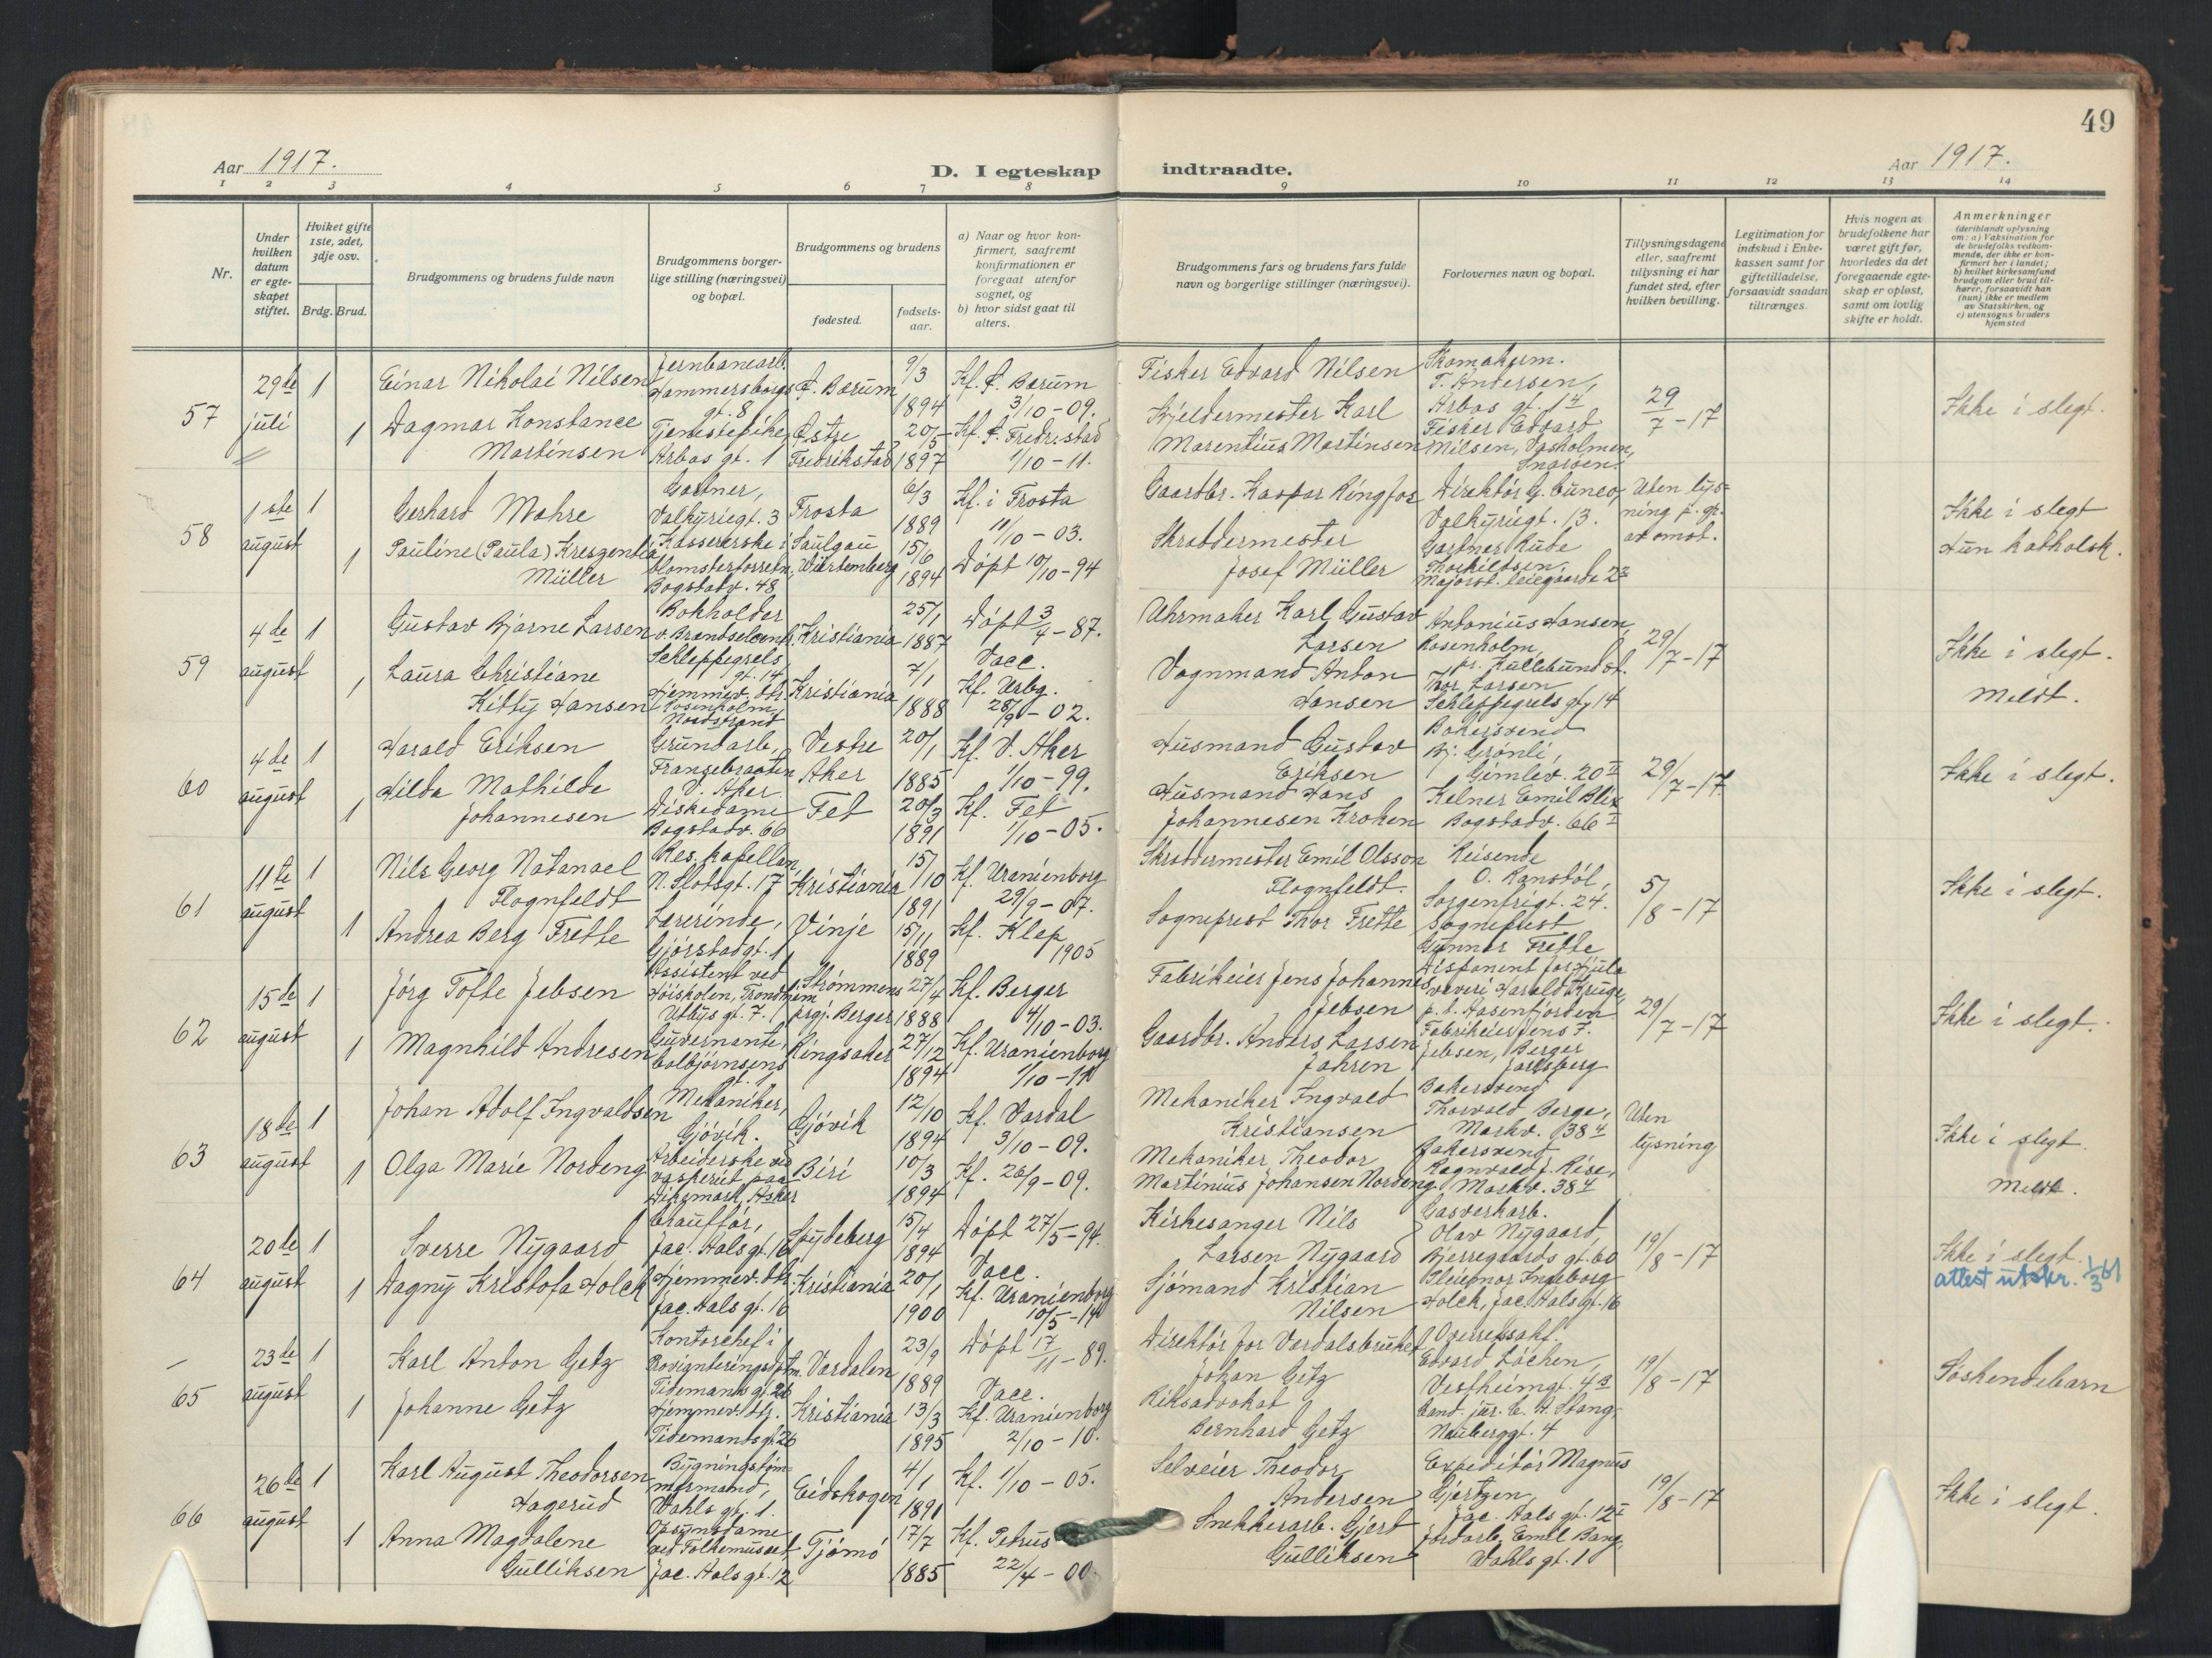 49
Aar 1917.
D. I egteskap indtraadte.
Aar 1917.
1 2 3 4 5 6 7 8 9 10 11 12 13 14
Nr.
Under hvilken datum er egteskapet stiftet.
Hvilket gifte 1ste, 2det, 3dje osv.
Brdg. Brud.
Brudgommens og brudens fulde navn
Brudgommens borgerlige stilling (næringsvei) og bopæl.
Brudgommens og brudens
fødested.
fødselsaar.
a) Naar og hvor konfirmert, saafremt konfirmationen er foregaat utenfor sognet, og
b) hvor sidst gaat til alters.
Brudgommens fars og brudens fars fulde navn og borgerlige stillinger (næringsvei).
Forlovernes navn og bopæl.
Tillysningsdagene eller, saafremt tillysning ei har fundet sted, efter hvilken bevilling.
Legitimation for indskud i Enkekassen samt for giftetilladelse, forsaavidt saadan tiltrænges.
Hvis nogen av brudefolkene har været gift før, hvorledes da det foregaaende egteskap er opløst, samt om lovlig skifte er holdt.
Anmerkninger
(deriblandt oplysning om: a) Vaksination for de brudefolks vedkommende, der ikke er konfirmert her i landet; b) hvilket kirkesamfund brudgom eller brud tilhører, forsaavidt han (hun) ikke er medlem av Statskirken, og c) utensogns bruders hjemsted
57
29de juli
1
Einar Nikolai Nilsen
Jernbanearb.
Hammersborgs gt. 8
Ø. Bærum
9/3 1894
Kf. Ø. Bærum
3/10-09.
Fisker Edvard Nilsen
Skomakerm.
T. Andersen,
Arbos gt. 1 4
29/7-17
Ikke i slegt.
1
Dagmar Konstance
Martinsen
Tjenestepike,
Arbos gt. 1
Østre Fredrikstad
20/5 1897
Kf. Ø. Fredr.stad
1/10-11.
Kjeldermester Karl
Marentius Martinsen
Fisker Edvard
Nilsen, Vasholmen,
Snarøen.
58
1ste august
1
Gerhard Mohre
Gartner,
Valkyriegt. 3
Frosta
6/3 1889
Kf. i Frosta
11/10-03.
Gaardbr. Kaspar Ringfos
Direktør G. Cuneo,
Valkyriegt. 13.
Uten lysning p. gr. av omst.
Ikke i slegt
Hun katholsk.
1
Pauline (Paula) Kreszentia
Müller
Kassererske i
blomsterforretn.,
Bogstadv. 48
Saulgau
Würtemberg
15/6 1894
Døpt 10/10-94
Skræddermester
Josef Müller
Gartner Rude
Thorkildsen.
Majorst. leiegaarde 23
59
4de august
1
Gustav Bjarne Larsen
Bokholder
Schleppegrels
gt. 14
Kristiania
25/1 1887
Døpt 3/4-87.
Vacc.
Uhrmaker Karl Gustav
Larsen
Antonius Hansen,
Rosenholm,
pr. Kullebundst.
29/7-17
Ikke i slegt.
Meldt.
1
Laura Christiane
Kitty Hansen
Hjemmev. dtr.
Rosenholm,
Nordstrand
Kristiania
7/1 1888
Kf. Urbg.
28/9-02.
Vognmand Anton
Hansen
Thor Larsen
Schleppegrels gt. 14
60
4de august
1
Harald Eriksen
Grundarb.,
Frangebraaten
V. Aker.
Vestre Aker
20/1 1885
Kf. V. Aker
1/10-99.
Husmand Gustav
Eriksen
Bakersvend
Bj. Grønli,
Gimlev. 20 II
29/7-17.
Ikke i slegt.
1
Hilda Mathilde
Johannesen
Diskedame
Bogstadv. 66
Fet
20/3 1891
Kf. Fet
1/10-05.
Husmand Hans
Johannesen Kroken
Kelner Emil Blix
Bogstadv. 66 I
61
11te august
1
Nils Georg Natanael
Flognfeldt
Res. kapellan,
N. Slotsgt. 17
Kristiania
15/10 1891
Kf. Uranienborg
29/9-07.
Skræddermester Emil Olsson
Flognfeldt.
Reisende
O. Ranstøl,
Sorgenfrigt. 24.
5/8-17
Ikke i slegt.
1
Andrea Berg Frette
Lærerinde,
Gjørstadgt. 1
Vinje
15/11 1889
Kf. Klep
1905
Sogneprest Thor Frette
Sogneprest
Gunnar Frette
62
15de august
1
Jørg Tofte Jebsen
Assistent ved
Høiskolen, Trondhjem
gt. 7.
Strømmens
prgj. Berger
27/4 1888
Kf. Berger
4/10-03.
Fabrikeier Jens Johannes
Jebsen
Disponent for Hjula
veveri Harald Kruge,
p. t. Aasenfjorden
29/7-17
Ikke i slegt.
1
Magnhild Andresen
Guvernante,
Colbjørnsens
gt. 1
Ringsaker
27/12 1894
Kf. Uranienborg
1/10-11
Gaardbr. Anders Larsen
Jahren
Fabrikeier Jens F.
Jebsen, Berger
Jarlsberg
63
18de august
1
Johan Adolf Ingvaldsen
Mekaniker,
Gjøvik.
Gjøvik
12/10 1894
Kf. Vardal
3/10-09.
Mekaniker Ingvald
Kristiansen
Bakersvend
Thorvald Berge,
Markv. 38 4
Uten lysning
Ikke i slegt.
Meldt.
1
Olga Marie Nordeng
Arbeiderske ved
vaskeriet paa
Dikemark, Asker
Biri
10/3 1894
Kf. 26/9-09.
Mekaniker Theodor
Martinius Johansen Nordeng
Bakersvend
Ragnvald J. Rise,
Markv. 38 4
64
20de august
1
Sverre Nygaard
Chauffør,
Jac. Aals gt. 16
Spydeberg
15/4 1894
Døpt 27/5-94.
Vacc.
Kirkesanger Nils
Larsen Nygaard
Gasverkarb.
Olav Nygaard,
Bjerregaards gt. 60
19/8-17
Ikke i slegt.
attest utskr. 1/3 61
1
Dagny Kristofa Holck
Hjemmev. dtr.
Jac. Aals gt. 16
Kristiania
20/1 1900
Kf. Uranienborg
10/5-14
Sjømand Kristian
Nilsen
Pleiemor Ingeborg
Holck, Jac. Aals gt. 16
65
23de august
1
Karl Anton Getz
Kontorchef i
Tidemands gt. 26
Værdalen
23/9 1889
Døpt 17/11-89.
Vacc.
Direktør for Værdalsbruket
Johan Getz
Overretssakf.
Edvard Løchen,
Vestheimgt. 4 B
19/8-17
Søskendebarn
1
Johanne Getz
Hjemmev. dtr.
Tidemands gt. 26
Kristiania
13/3 1895
Kf. Uranienborg
2/10-10.
Riksadvokat
Bernhard Getz
Cand. jur. E. A. Stang,
Neuberggt. 4
66
26de august
1
Karl August Theodorsen
Hagerud
Bygningstømmermand,
Dahls gt. 1.
Eidskogen
4/1 1891
Kf. 1/10-05.
Selveier Theodor
Andersen
Expeditør Magnus
Gjertzen,
Jac. Aals gt. 12 I
19/8-17
Ikke i slegt.
1
Anna Magdalene
Gulliksen
Opsynsdame
ved Folkemuseet,
Jac. Aals gt. 12
Tjømø
17/7 1885
Kf. Petrus
22/4-00.
Snekkerarb. Gjert
Gulliksen
Jordarb. Emil Bang,
Dahls gt. 1